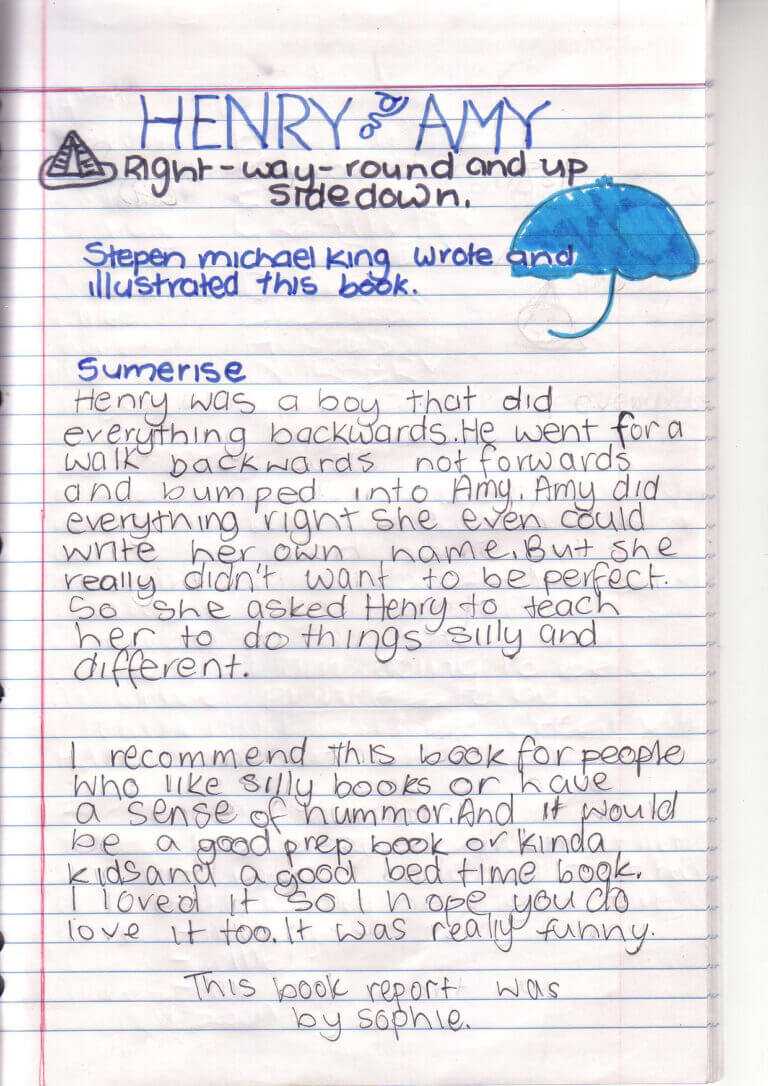 HENRY and AMY
Right-way-round and up
side down.
Stepen michael king wrote and
illustrated this book.
Sumerise
Henry was a boy that did
everything backwards. He went for a
walk backwards not forwards
and bumped into Amy. Amy did
everything right she even could
write her own name. But she
really didn't want to be perfect.
So she asked Henry to teach
her to do things silly and
different.
I recommend this book for people
who like silly books or have
a sense of hummor. And it would
be a good prep book or kinda
kids and a good bed time book.
I loved it so I hope you do
love it too. It was really funny.
This book report was
by sophie.